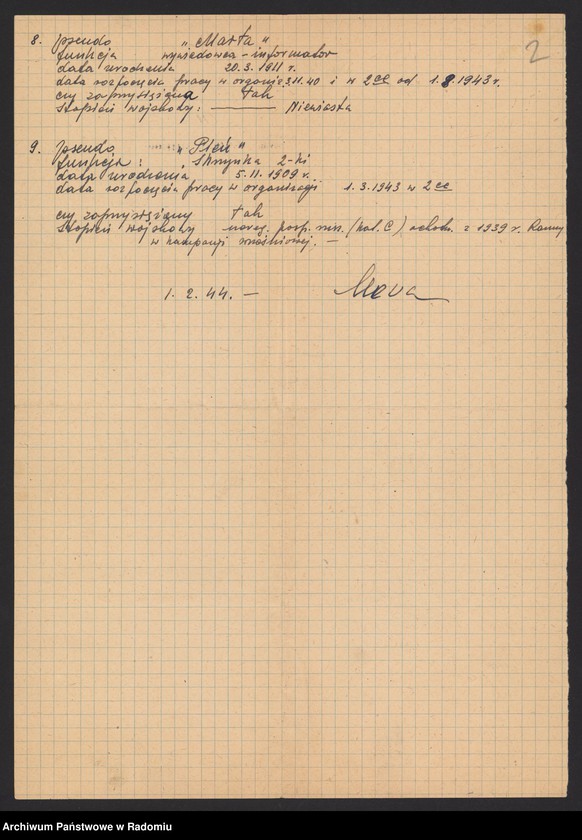 2
8. pseudo „Marta"
funkcja wywiadowca - informator
data urodzenia 20.3.1911 r.
data rozpoczęcia pracy w organiz 3.11.40 i w 2 ce od 1.8.1943 r.
czy zaprzysiężona tak
Stopień wojskowy: ——— Niewiasta
9. pseudo „Pleń"
funkcja: Skrzynka 2-ki
data urodzenia 5.11.1909 r.
data rozpoczęcia pracy w organizacji 1.3.1943 w 2 ce
czy zaprzysiężony tak
Stopień wojskowy (kat. C) z 1939 r. Ranny
w kampanji wrześniowej. —
1.2.44. —
Archiwum Państwowe w Radomiu